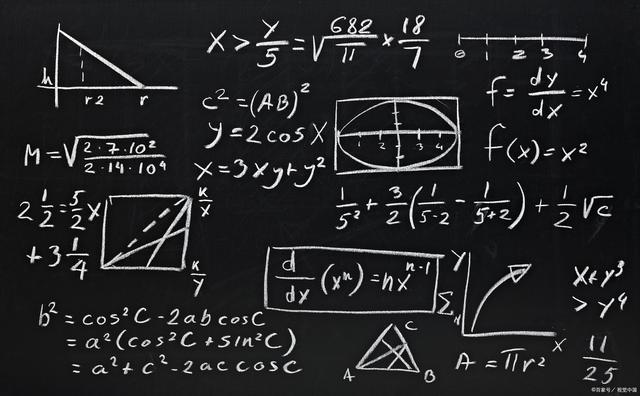 h
r 2 r
x > y/5 = √(682/π) × 18/7
0 1 2 3 4
c² = (AB)²
y = 2 cos x
x = 3xy + y²
1 2 3 4
f = dy/dx = x⁴
f(x) = x²
M = √(2·7·10²/2·14·10⁴)
2 1/2 = 5/2 x
+ 3 1/4
K/X
K/Y
1/5² + 3/2 (1/5-2 - 1/5+2) + 1/2 √c
d/dx (xⁿ) = nxⁿ⁻¹
Y
Σ
X
x + y³
> y⁴
11/25
b² = cos²C - 2ab cosC
= a² (cos²C + sin²C)
= a² + c² - 2ac cosC
A B C
A = πr²
©百家号/视觉中国